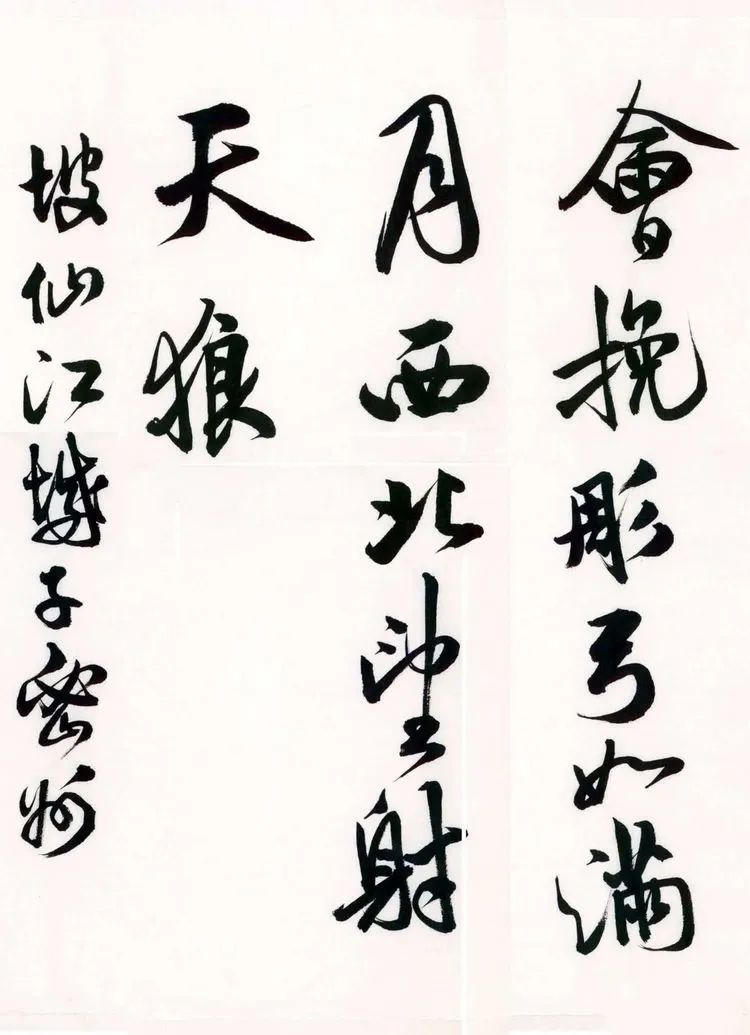 會挽彫弓如滿
月西北望射
天狼
坡仙江城子密州